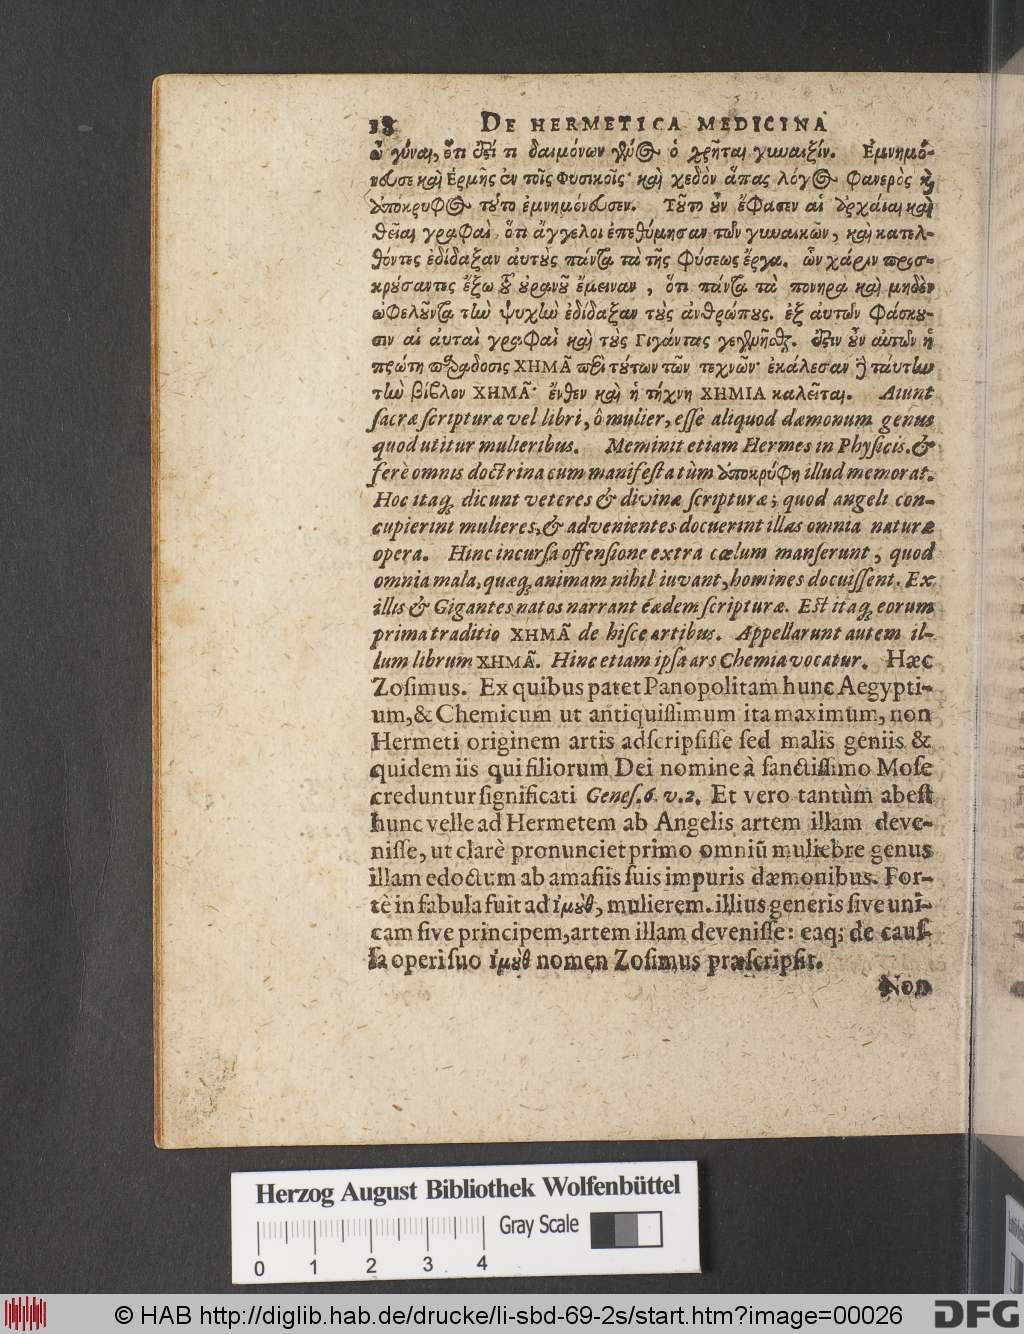 18 DE HERMETICA MEDICINA
ὦ γύναι, ὅτι ἐστί τι δαιμόνων γένος ὁ χρῆται γυναιξίν. Ἐμνημό-
νευσε καὶ Ἑρμῆς ἐν τοῖς Φυσικοῖς· καὶ χεδὸν ἅπας λόγος Φανερὸς καὶ
ἀπόκρυφος τοῦτο ἐμνημόνευσεν. Τοῦτο οὖν ἔφασεν αἱ ἀρχάιαι καὶ
θεῖαι γραφαὶ, ὅτι ἄγγελοι ἐπεθύμησαν τῶν γυναικῶν, καὶ κατελ-
θόντες ἐδίδαξαν ἀυτοὺς πάντα τὰ τῆς φύσεως ἔργα. ὧν χάριν προσ-
κρύσαντες ἔξω τοῦ οὐρανοῦ ἔμειναν, ὅτι πάντα τὰ πονηρα καὶ μηδὲν
ὠφελοῦντα τὴν ψυχὴν ἐδίδαξαν τοὺς ἀνθρώπους. ἐξ ἀυτῶν φάσκου-
σιν αἱ ἀυταὶ γραφαὶ καὶ τοὺς Γιγάντας γεγενῆσθαι. ἔστιν οὖν αὐτῶν ἡ
πρώτη παράδοσις ΧΗΜΑ͂ περὶ τούτων τῶν τεχνῶν· ἐκάλεσαν δὲ ταύτην
τὴν βίβλον ΧΗΜΑ͂· ἔνθεν καὶ ἡ τήχνη ΧΗΜΙΑ καλεῖται. Aiunt
sacræ scripturæ vel libri, ô mulier, esse aliquod dæmonum genus
quod utitur mulieribus. Meminit etiam Hermes in Physicis. &
ferè omnis doctrina cum manifesta tùm ἀποκρύφη illud memorat.
Hoc itaq; dicunt veteres & divinæ scripturæ; quod angeli con-
cupierint mulieres, & advenientes docuerint illas omnia naturæ
opera. Hinc incursa offensione extra cœlum manserunt, quod
omnia mala, quæq; animam nihil iuvant, homines docuissent. Ex
illis & Gigantes natos narrant eædem scripturæ. Est itaq; eorum
prima traditio ΧΗΜΑ͂ de hisce artibus. Appellarunt autem il-
lum librum ΧΗΜΑ͂. Hinc etiam ipsa ars Chemia vocatur. Hæc
Zosimus. Ex quibus patet Panopolitam hunc Aegypti-
um, & Chemicum ut antiquissimum ita maximum, non
Hermeti originem artis adscripsisse sed malis geniis &
quidem iis qui filiorum Dei nomine à sanctissimo Mose
creduntur significati Genes. 6. v. 2. Et vero tantùm abest
hunc velle ad Hermetem ab Angelis artem illam deve-
nisse, ut clarè pronunciet primo omniū muliebre genus
illam edoctum ab amasiis suis impuris dæmonibus. For-
tè in fabula fuit ad ἰμοὺθ, mulierem. illius generis sive uni-
cam sive principem, artem illam devenisse: eaq; de caus-
sa operi suo ἰμοὺθ nomen Zosimus præscripsit.
Non
Herzog August Bibliothek Wolfenbüttel
Gray Scale
0 1 2 3 4
© HAB http://diglib.hab.de/drucke/li-sbd-69-2s/start.htm?image=00026
DFG